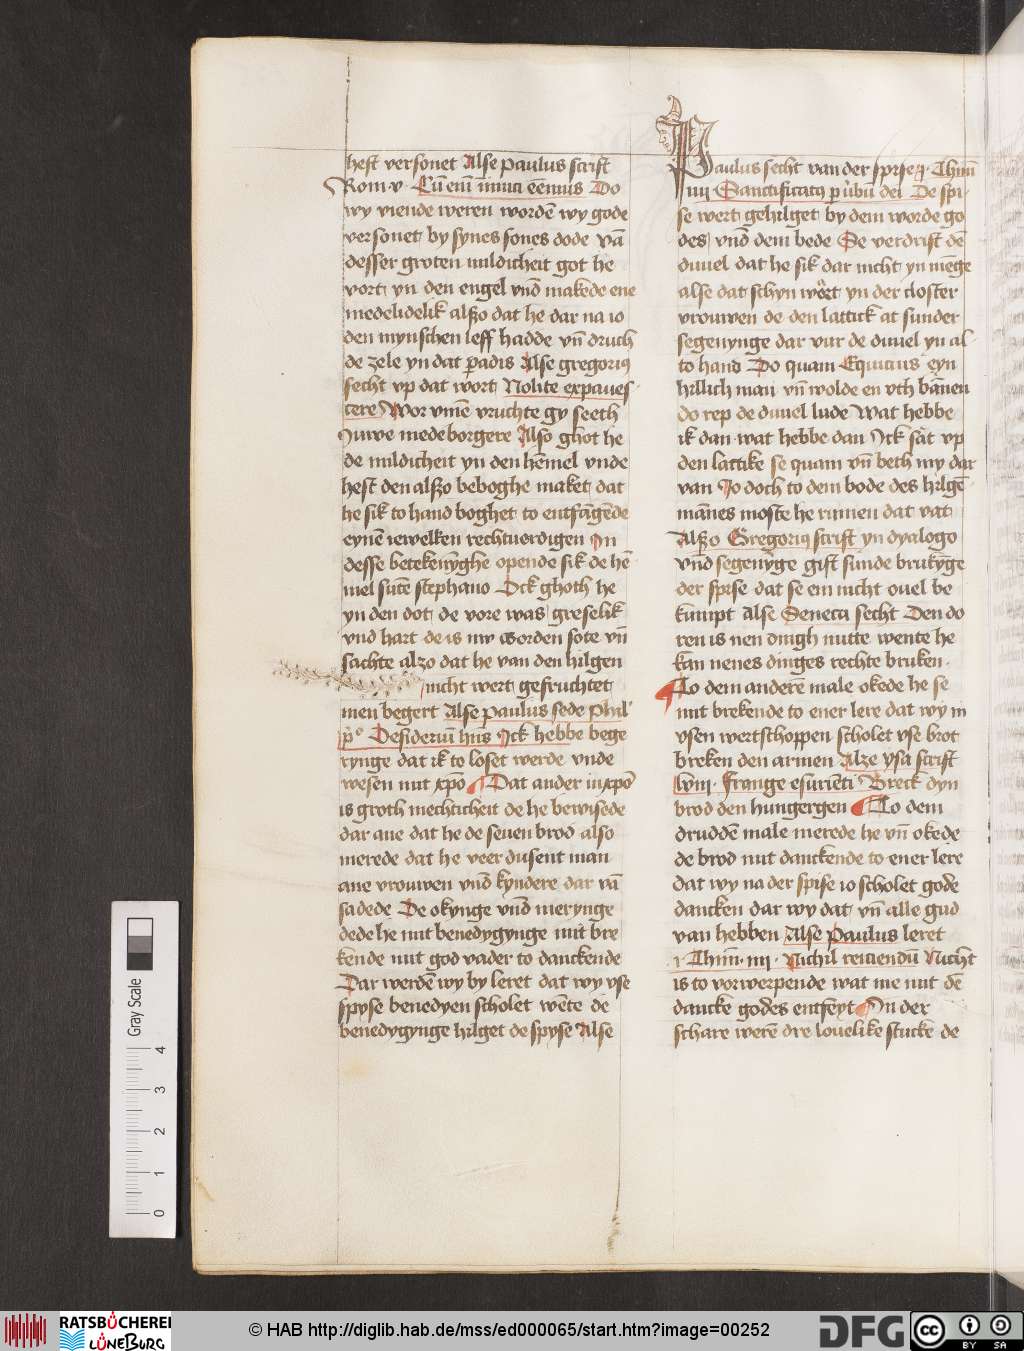 heft versonet Alse paulus scrift
Rom · v · Cū eni͞ inimici eēmus Do
wy viende weren wordē wy gode
versonet by synes sones dode vā
desser groten mildicheit got he
vort yn den engel vnd makede ene
medelidelik alßo dat he dar na io
den mynschen leff hadde vn̄ druch
de zele yn dat ꝑadis Alse gregoriꝯ
secht vp dat wort Nolite expaues
cere Wor vmē vruchte gy seeth
Juwe medeborgere Also ghot he
de mildicheit yn den hēmel vnde
heft den alßo beboghe maket dat
he sik to hand boghet to entfāgēde
eynē iewelken rechtuerdigen Jn
desse betekenȳghe opende sik de hē
mel sutē stephano Ock ghoth he
yn den dot de vore was greselik
vnd hart de is nw Gorden sote vn̄
sachte alzo dat he van den hilgen
nicht wert gefruchtet
men begert Alse paulus sede phil'
p° Desideriū hn̄s Jck hebbe bege
rynge dat ik to loset werde vnde
wesen mit xp̄o Dat ander in xp̄o
is groth mechticheit de he bewisede
dar ane dat he de seuen brod also
merede dat he veer dusent man
ane vrouwen vnd kyndere dar vā
sadede De okynge vnd merynge
dede he mit benedygynge mit bre
kende mit god vader to danckende
Dar werdē wy by leret dat wy vse
spyse benedyen scholet wēte de
benedygynge hilget de spyse Alse
Paulus secht van der spise ꝗ · Thim̄
iiij Sanctificatꝯ ꝑ v̓bū dei De spi
se wert gehilget by dem worde go
des vnd dem bede Se verdrift dē
duuel dat he sik dar nicht yn mēge
alse dat schyn wart yn der closter
vrouwen de den lattick at sunder
segenynge dar vur de duuel yn al
to hand Do quam Equicius eyn
hillich man vn̄ wolde en vth bānen
do rep de duuel lude Wat hebbe
ik dan wat hebbe dan Jck sat vp
den lattike se quam vn̄ beth my dar
van Jo doch to dem bode des hilgē
mānes moste he rumen dat vat
Alßo Gregoriꝯ scrift yn dyalogo
vnd segenȳge gift sunde brukȳge
der spise dat se em nicht ouel be
kumpt Alse Seneca secht Den do
ren is nen dingh nutte wente he
kan nenes dinges rechte bruken ·
To dem anderē male okede he se
mit brekende to ener lere dat wy in
vsen wertschoppen scholet vse brot
breken den armen Alze ysa scrift
lviij · Frange esuriēti Breck dyn
brod den hungergen To dem
druddē male merede he vn̄ okede
de brod mit danckende to ener lere
dat wy na der spise io scholet gode
dancken dar wy dat vn̄ alle gud
van hebben Alse Paulus leret
1 Thim̄ · iiij · Nichil reiciendū Nicht
is to vorwerpende wat me mit dē
dancke godes entfeyt Jn der
schare werē dre louelike stucke de
Gray Scale
4
3
2
1
0
RATSBÜCHEREI
LÜNEBURG
© HAB http://diglib.hab.de/mss/ed000065/start.htm?image=00252
DFG
cc
BY SA